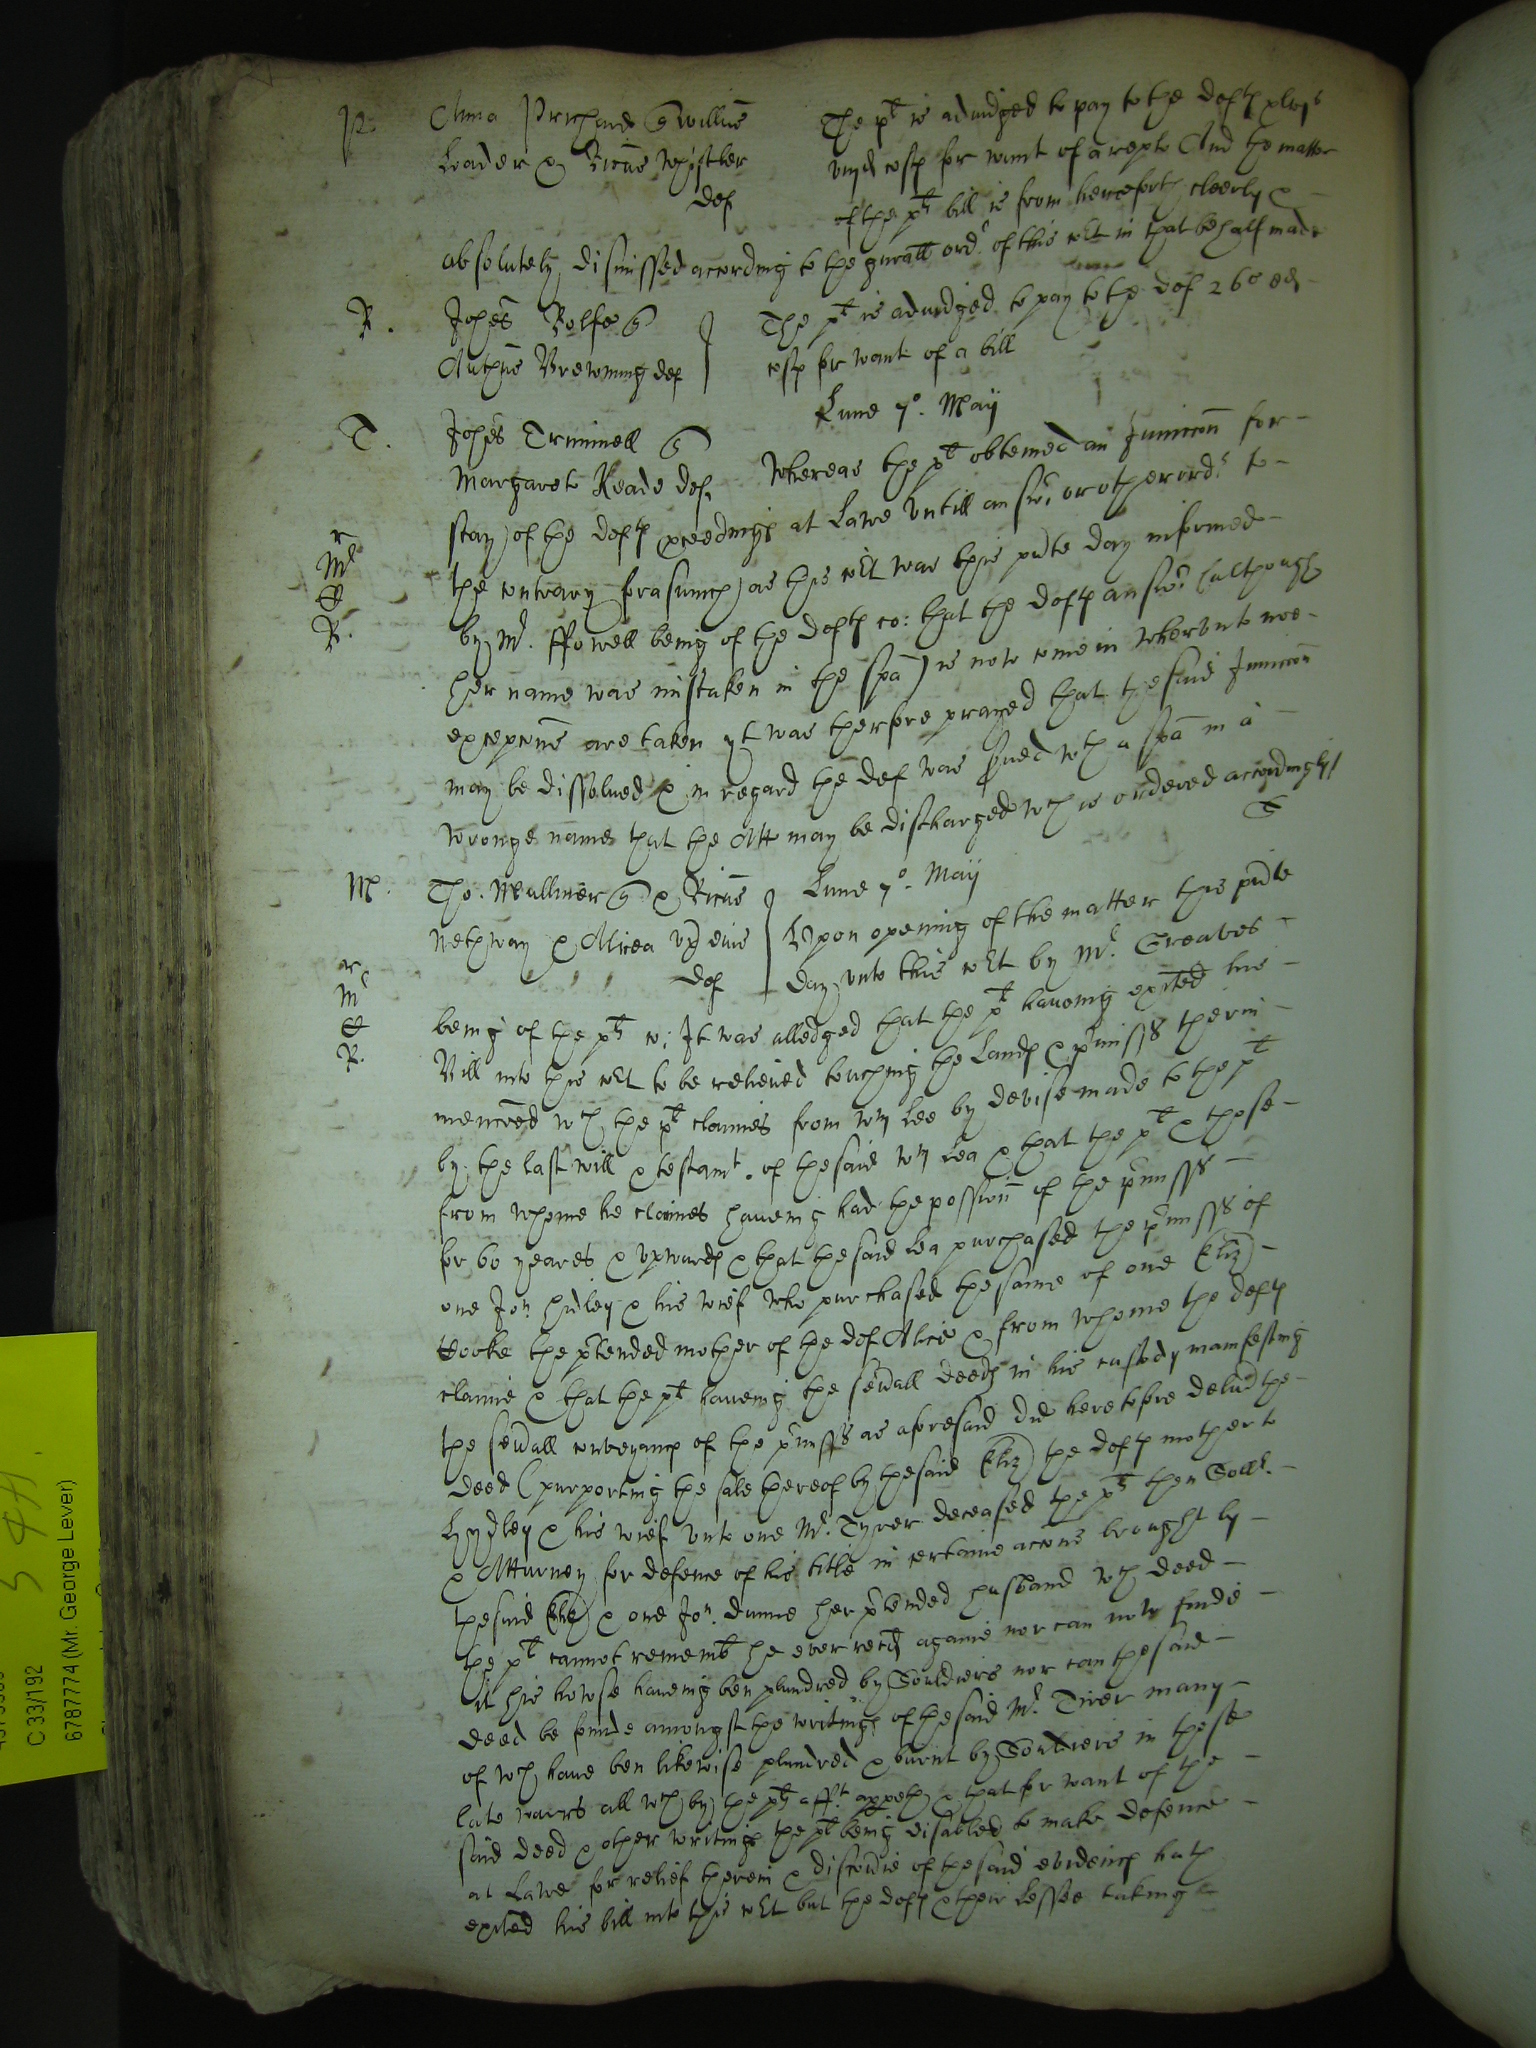 P. Anna Prichard q Willus The plt is adiudged to pay to the defts xlvjs
Leader & Ricus Whistler viijd costs for want of a replic And the matter
def of the plts bill is from henceforth cleerly &
absolutely dismissed according to the gnrall ordr of this cort in that behalf made
R. Johes Rolfe q The plt is adiudged to pay to the def 26s 8d
Authus Browning def costs for want of a bill
Lune 7o. Maij
T. Johes Trminell q
Margareta Reade def. Whereas the plt obteined an Iniuccon for
stay of the defts pceedings at Lawe Untill answr or other ordr to
the contrary forasmuch as this cort was this pnte day informed
by Mr. ffowell being of the defts co: that the defts answr (although
her name was mistaken in the spa) is now come in wherunto noe
excepcons are taken yt was therfore prayed that the said Iniuccon
may be dissolued & in regard the def was serued wth a spa in a
wronge name that the Att may be discharged wch is ordered accordingly
r
Mr
R.
M. Tho. Malliner q & Ricus Lune 7o. Maij
Nethway & Alicea vx eius Upon opening of the matter this pnte
def day vnto this cort by Mr. Greaves
being of the plts co: It was alledged that the plt haueing exited his
Bill into this cort to be releiued touching the Lands & pmisss therin
menconed wch the plt claimes from Wm Lee by devise made to the plt
by the last will & testamt. of the said Wm Lea & that the plt & those
from whome he claimes haueing had the possion of the pmisss
for 60 yeares & vpwards & that the said Lea purchased the pmisss of
one Jon hidley & his wief who purchased the same of one Eliz
Hooke the ptended mother of the def Alice & from whome the defts
claime & that the plt haueing the seuall deeds in his custody manifesting
the seuall conveyancs of the pmisss as aforesaid did heretofore deliud the
deed (purporting the sale thereof by the said Eliz the defts mother to
Hydley & his wief vnto one Mr. Tyrer deceased the plts then Sollr.
& Atturney for defence of his title in certaine accons brought by
the said Eliz & one Jon. dunne her ptended husband wch deed
the plt cannot remembr he ever recd againe nor can now finde
it his howse haueing ben plundred by Souldiers nor can the said
deed be founde amongst the writings of the said Mr. Tirer many
of wch haue ben likewise plundred & burnt by Souldiers in these
late warrs all wch by the plts afft. appeth & that for want of the
said deed & other writings the plt being disabled to make defence
at Lawe for relief therein & discouie of the said evidencs hath
exited his bill into this cort but the defts & their Lessee taking
r
Mr
R.
C 33/192
6787774 (Mr. George Lever)